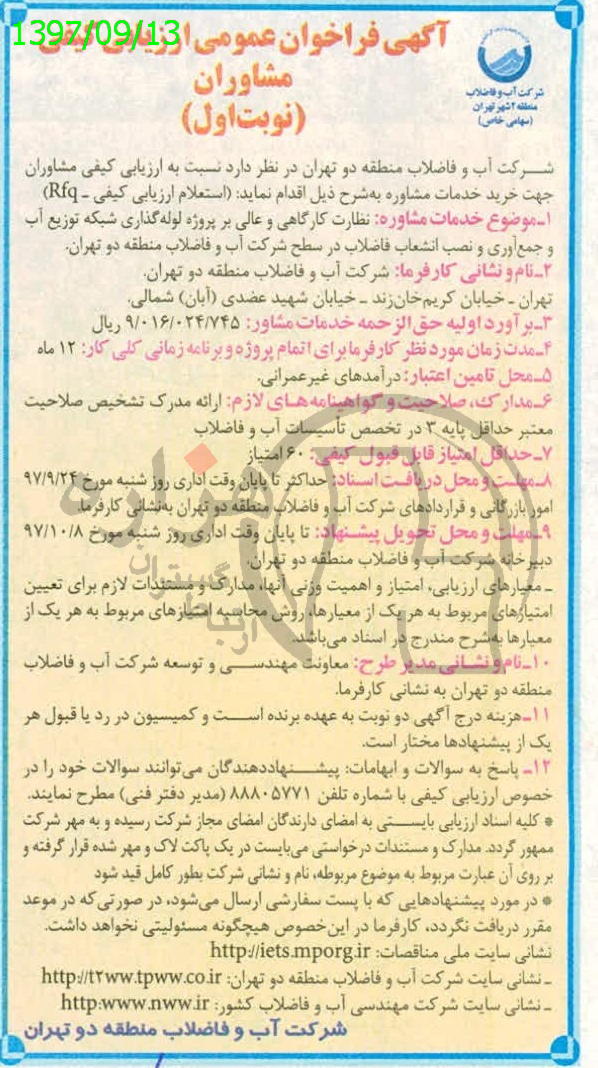 1397/09/13
آگهی فراخوان عمومی ارزیابی کیفی
مشاوران
(نوبت اول)
شرکت آب و فاضلاب
منطقه ۲ شهر تهران
(سهامی خاص)
شرکت آب و فاضلاب منطقه دو تهران در نظر دارد نسبت به ارزیابی کیفی مشاوران
جهت خرید خدمات مشاوره به‌شرح ذیل اقدام نماید: (استعلام ارزیابی کیفی - Rfq)
۱ـ موضوع خدمات مشاوره: نظارت کارگاهی و عالی بر پروژه لوله‌گذاری شبکه توزیع آب
و جمع‌آوری و نصب انشعاب فاضلاب در سطح شرکت آب و فاضلاب منطقه دو تهران.
۲ـ نام و نشانی کارفرما: شرکت آب و فاضلاب منطقه دو تهران.
تهران ـ خیابان کریم‌خان‌زند ـ خیابان شهید عضدی (آبان) شمالی.
۳ـ برآورد اولیه حق‌الزحمه خدمات مشاور: ۹/۰۱۶/۰۲۴/۷۴۵ ریال
۴ـ مدت زمان مورد نظر کارفرما برای اتمام پروژه و برنامه زمانی کلی کار: ۱۲ ماه
۵ـ محل تامین اعتبار: درآمدهای غیرعمرانی.
۶ـ مدارک، صلاحیت و گواهینامه‌های لازم: ارائه مدرک تشخیص صلاحیت
معتبر حداقل پایه ۳ در تخصص تأسیسات آب و فاضلاب
۷ـ حداقل امتیاز قابل قبول کیفی: ۶۰ امتیاز
۸ـ مهلت و محل دریافت اسناد: حداکثر تا پایان وقت اداری روز شنبه مورخ ۹۷/۹/۲۴
امور بازرگانی و قراردادهای شرکت آب و فاضلاب منطقه دو تهران به‌نشانی کارفرما.
۹ـ مهلت و محل تحویل پیشنهاد: تا پایان وقت اداری روز شنبه مورخ ۹۷/۱۰/۸
دبیرخانه شرکت آب و فاضلاب منطقه دو تهران.
ـ معیارهای ارزیابی، امتیاز و اهمیت وزنی آنها، مدارک و مستندات لازم برای تعیین
امتیازهای مربوط به هر یک از معیارها، روش محاسبه امتیازهای مربوط به هر یک از
معیارها به‌شرح مندرج در اسناد می‌باشد.
۱۰ـ نام و نشانی مدیر طرح: معاونت مهندسی و توسعه شرکت آب و فاضلاب
منطقه دو تهران به نشانی کارفرما.
۱۱ـ هزینه درج آگهی دو نوبت به عهده برنده است و کمیسیون در رد یا قبول هر
یک از پیشنهادها مختار است.
۱۲ـ پاسخ به سوالات و ابهامات: پیشنهاددهندگان می‌توانند سوالات خود را در
خصوص ارزیابی کیفی با شماره تلفن ۸۸۸۰۵۷۷۱ (مدیر دفتر فنی) مطرح نمایند.
* کلیه اسناد ارزیابی بایستی به امضای دارندگان امضای مجاز شرکت رسیده و به مهر شرکت
ممهور گردد. مدارک و مستندات درخواستی می‌بایست در یک پاکت لاک و مهر شده قرار گرفته و
بر روی آن عبارت مربوط به موضوع مربوطه، نام و نشانی شرکت بطور کامل قید شود
* در مورد پیشنهادهایی که با پست سفارشی ارسال می‌شود، در صورتی‌که در موعد
مقرر دریافت نگردد، کارفرما در این‌خصوص هیچگونه مسئولیتی نخواهد داشت.
نشانی سایت ملی مناقصات: http://iets.mporg.ir
ـ نشانی سایت شرکت آب و فاضلاب منطقه دو تهران: http://t2ww.tpww.co.ir
ـ نشانی سایت شرکت مهندسی آب و فاضلاب کشور: http:www.nww.ir
شرکت آب و فاضلاب منطقه دو تهران